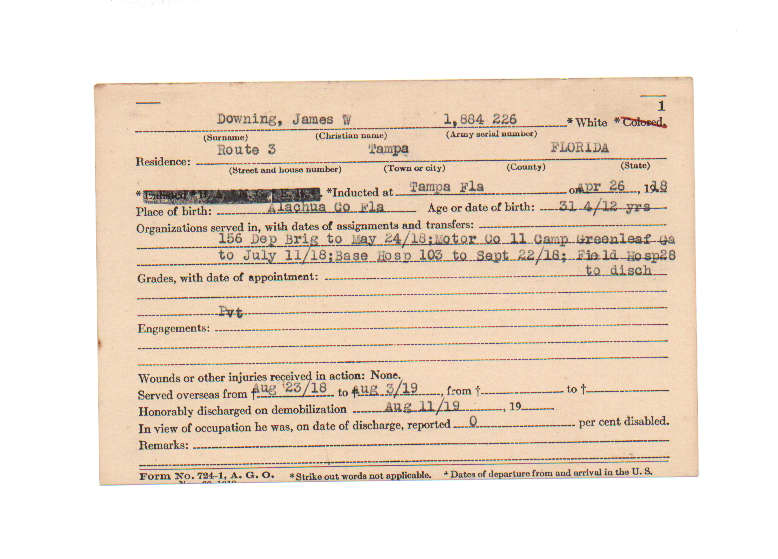 1
Downing, James W 1,884 226 *White *Colored.
(Surname) (Christian name) (Army serial number)
Route 3 Tampa FLORIDA
Residence:
(Street and house number) (Town or city) (County) (State)
* *Inducted at Tampa Fla on Apr 26, 1918
Place of birth: Alachua Co Fla Age or date of birth: 31 4/12 yrs
Organizations served in, with dates of assignments and transfers:
156 Dep Brig to May 24/18;Motor Co 11 Camp Greenleaf Ga
to July 11/18;Base Hosp 103 to Sept 22/18; Field Hosp28
to disch
Grades, with date of appointment:
Pvt
Engagements:
Wounds or other injuries received in action: None.
Served overseas from † Aug 23/18 to † Aug 3/19, from † to †
Honorably discharged on demobilization Aug 11/19, 19
In view of occupation he was, on date of discharge, reported 0 per cent disabled.
Remarks:
Form No. 724-1, A. G. O. *Strike out words not applicable. †Dates of departure from and arrival in the U. S.